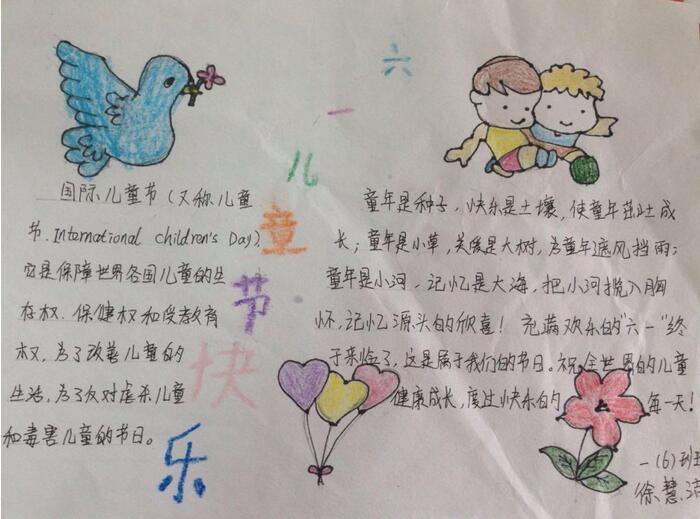 六
一
儿
童
节
快
乐
国际儿童节(又称儿童
节,International children's Day)
它是保障世界各国儿童的生
存权、保健权和受教育
权,为了改善儿童的
生活,为了反对虐杀儿童
和毒害儿童的节日。
童年是种子,快乐是土壤,使童年茁壮成
长;童年是小草,关爱是大树,为童年遮风挡雨;
童年是小河,记忆是大海,把小河揽入胸
怀,记忆源头的欣喜!充满欢乐的"六一"终
于来临了,这是属于我们的节日。祝全世界的儿童
健康成长,度过快乐的每一天!
一(6)班
徐慧洁